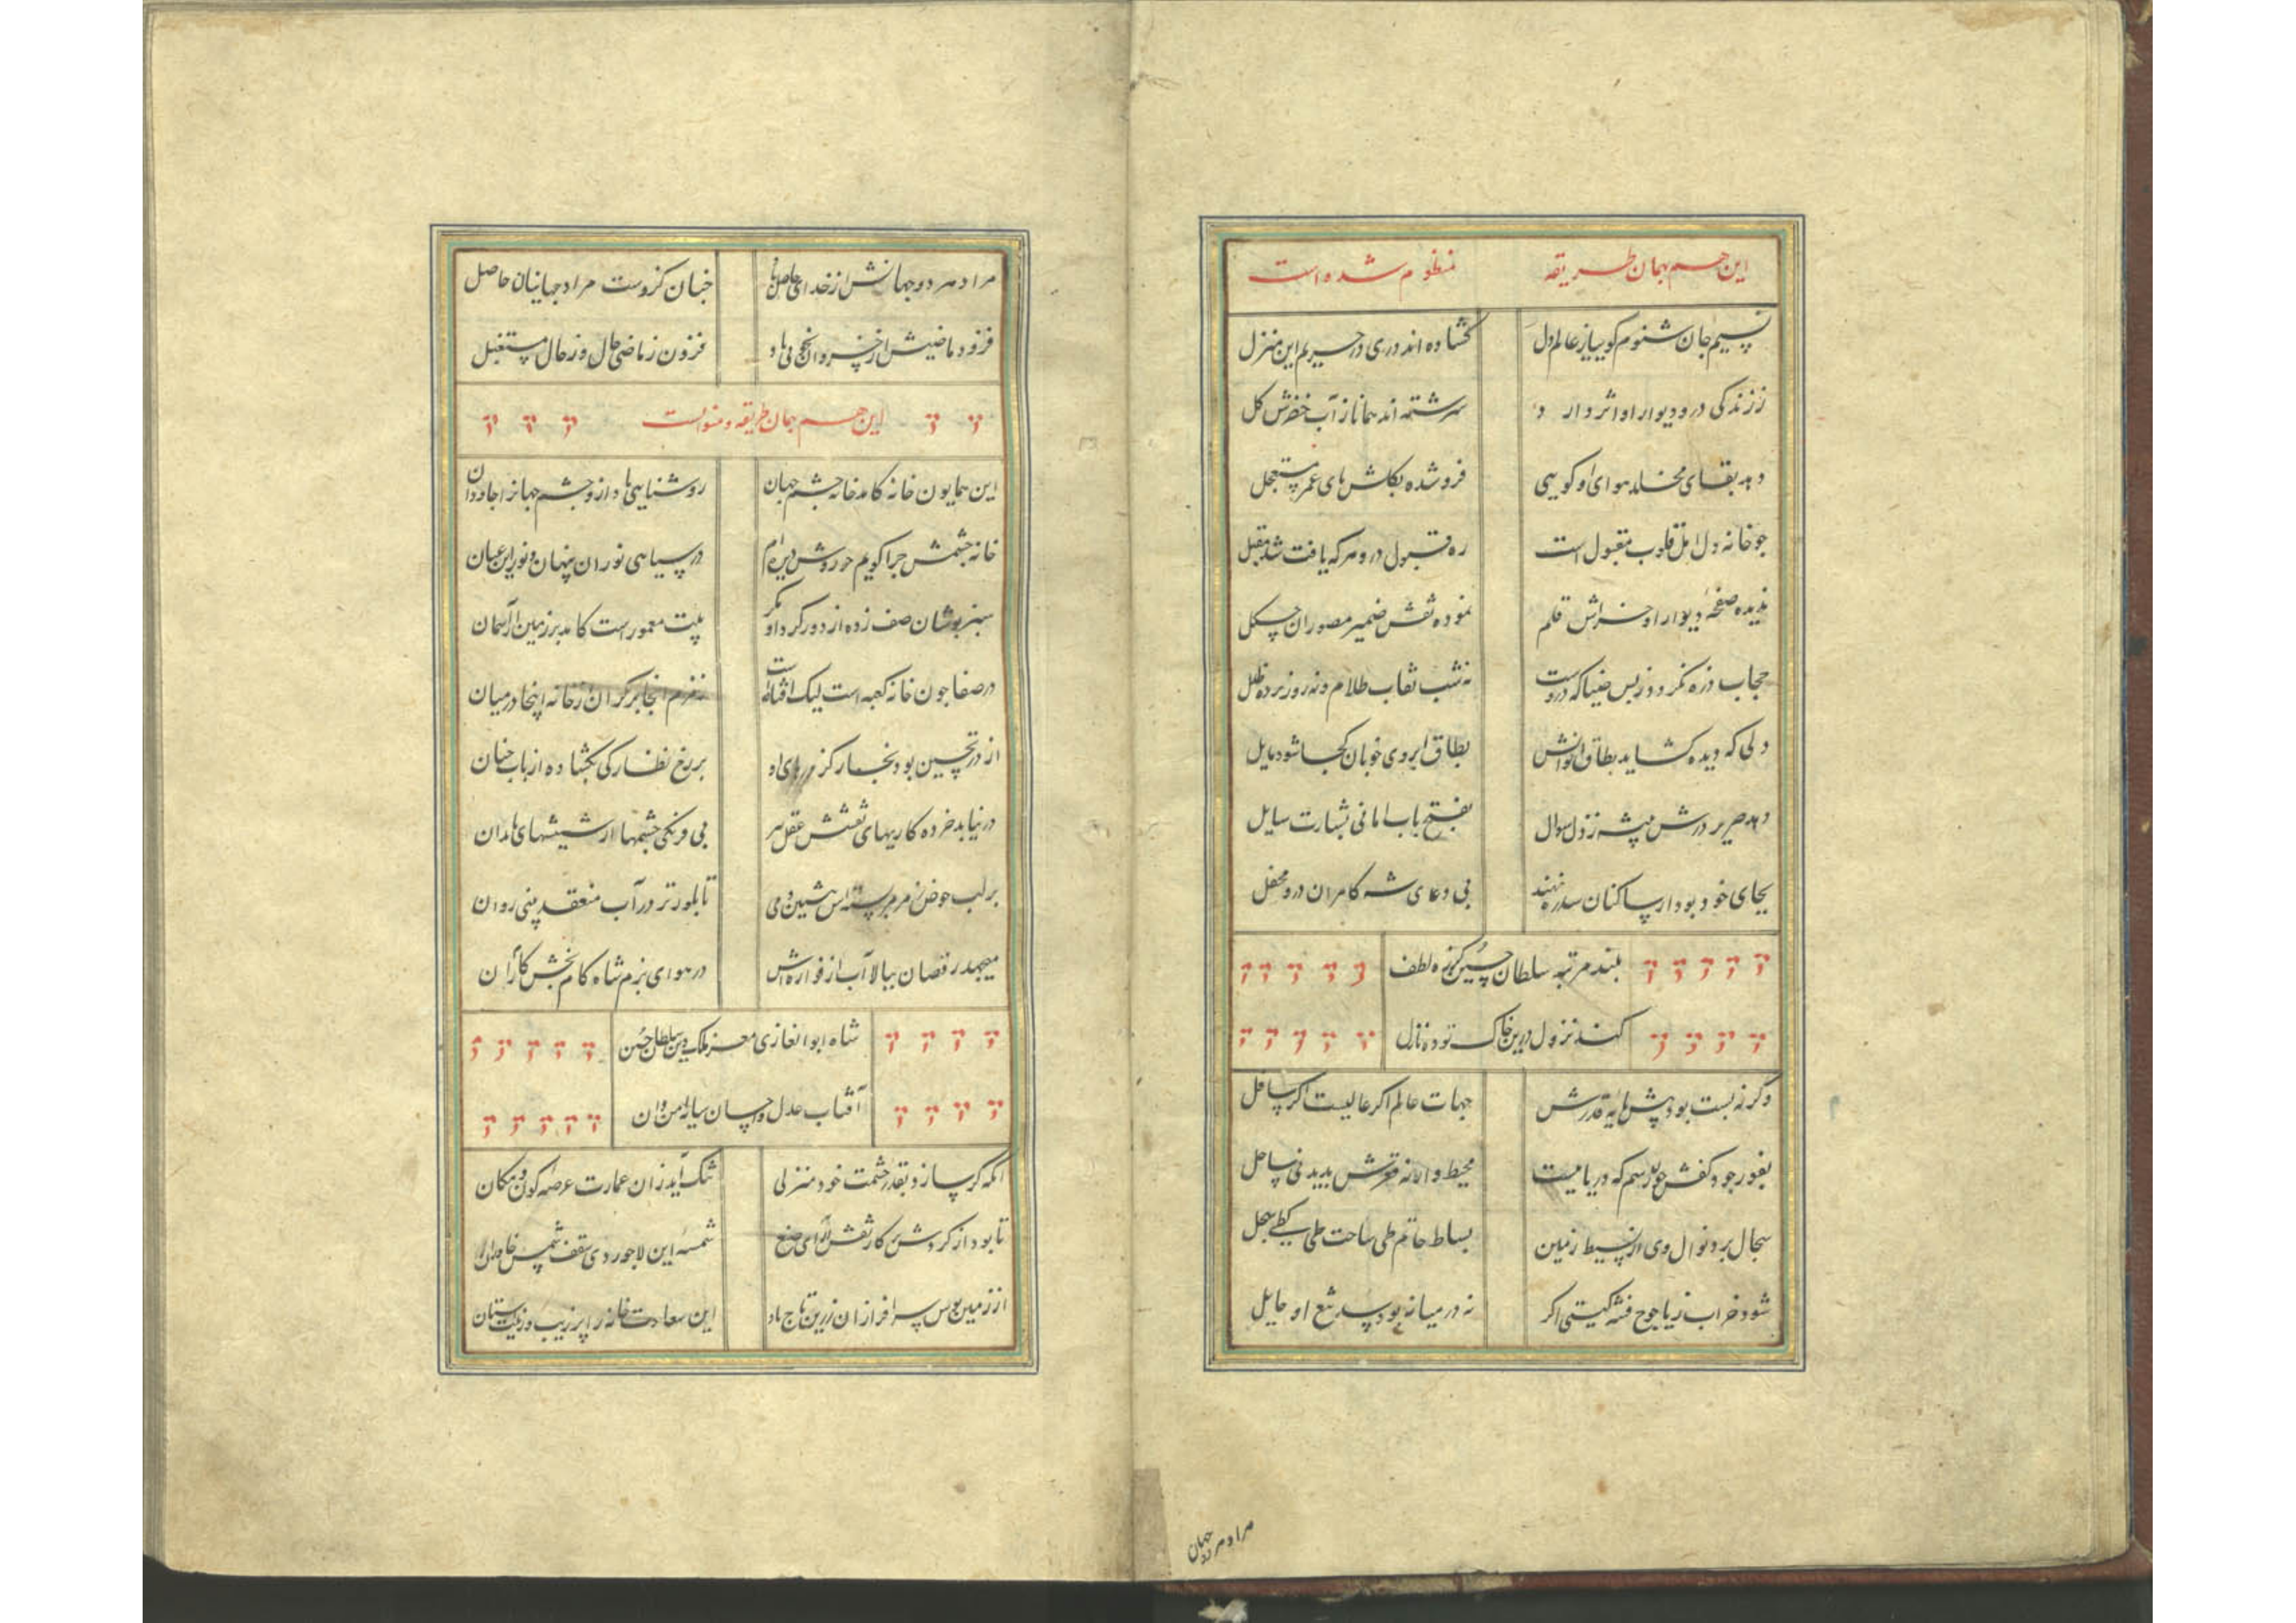 این هم بهمان طریقه منظوم شده است
نسیم جان شنوم کوییا ز عالم دل کشاده اند دری در حریم این منزل
ز زندکی در و دیوار او اثر دارد سرشته اند همانا ز آب خضرش کل
دهد بقای مخلد هوای او کویی فرو شده بکلش پای عمر مستعجل
جو خانه دل اهل قلوب مقبول است ره قبول درو هر که یافت شد مقبل
ندیده صفحه دیوار او خراش قلم نموده نقش ضمیر مصوران چکل
حجاب ذره نکردد ز بس ضیا که دروست نه شب نقاب ظلام و نه روز پرده ظل
دلی که دیده کشاید بطاق ایوانش بطاق ابروی خوبان کجا شود مایل
دهد صریر درش پیش از سوال بفتح باب امانی بشارت سایل
بجای خود بود ار ساکنان سدره نهند پی دعای شه کامران درو محفل
بلند مرتبه سلطان حسین کز ره لطف
کند نزول درین خاک توده نازل
وکرنه پست بود پیش پایه قدرش جهات عالم اکر عالیست اکر سافل
بغور جود کفش چون رسم که دریاییست محیط وار نه قعرش پدید نی ساحل
سجال بر و نوال وی از بسیط زمین بساط حاتم طی ساخت طی کطی سجل
شود خراب ز یاجوج فتنه کیتی اکر نه در میانه بود سد تیغ او حایل
مراد هر دو جهان
مراد هر دو جهانش از خدای حاصل باد جنان کزوست مراد جهانیان حاصل
فزون ز ماضی حال و ز حال مستقبل
این هم بهمان طریقه و منوالست
این همایون خانه کامد خانه چشم جهان روشناییها دازو چشم جهانرا جاودان
خانه چشمش جرا کویم در سیاهی نور آن پنهان و نور این عیان
سبزپوشان صف زده از دور کرداکرد او بیت معمورست کامد بر زمین از آسمان
در صفا جون خانه کعبه است لیک افتاده است زمزم آنجا بر کران ز خانه اینجا در میان
بر رخ نظارکی بکشاده ارباب جنان
در نیابد خرده کاریهای نقشش عقل پیر بی فرنکی چشمها از شیشهای تابدان
بر لب حوض ز مرمر بسته اش بنشین دمی تا بلور تر در آب منعقد بینی روان
میجهد رقصان ببالا آب از فواره اش در هوای بزم شاه کام بخش کامران
شاه ابوالغازی معز ملک و دین سلطان حسین
آفتاب عدل و احسان سایه امن و امان
آنکه کر سازد بقدر حشمت خود منزلی تنک آید زان عمارت عرصه کون و مکان
تا بود از کردش پرکار نقش آرای صنع شمسه این لاجوردی سقف شمس خاوران
از زمین بوس سرافرازان زرین تاج باد این سعادت خانه را پر زیب و زینت آستان